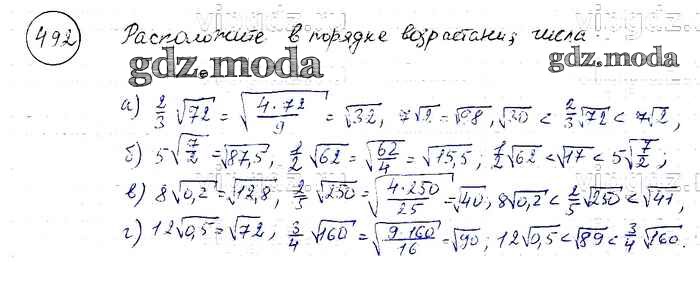 492 Расположите в порядке возрастания числа
gdz.moda gdz.moda
а) 2/3 √72 = √(4·72/9) = √32, 7√2 = √98, √30 < 2/3 √72 < 7√2;
б) 5√(7/2) = √87,5, 1/2 √62 = √(62/4) = √15,5; 1/2 √62 < √17 < 5√(7/2);
в) 8√0,2 = √12,8, 2/5 √250 = √(4·250/25) = √40, 8√0,2 < 2/5 √250 < √41,
г) 12√0,5 = √72, 3/4 √160 = √(9·160/16) = √90; 12√0,5 < √89 < 3/4 √160.